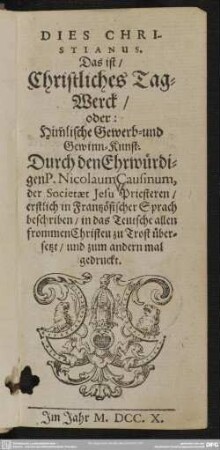 DIES CHRI-
STIANUS.
Das ist /
Christliches Tag-
Werck /
oder:
Him̃lische Gewerb-und
Gewinn-Kunst.
Durch den Ehrwürdi-
gen P. Nicolaum Causinum,
der Societæt Jesu Priesteren /
erstlich in Frantzösischer Sprach
beschriben / in das Teutsche allen
frommen Christen zu Trost über-
setzt / und zum andern mal
gedruckt.
Im Jahr M. DCC. X.